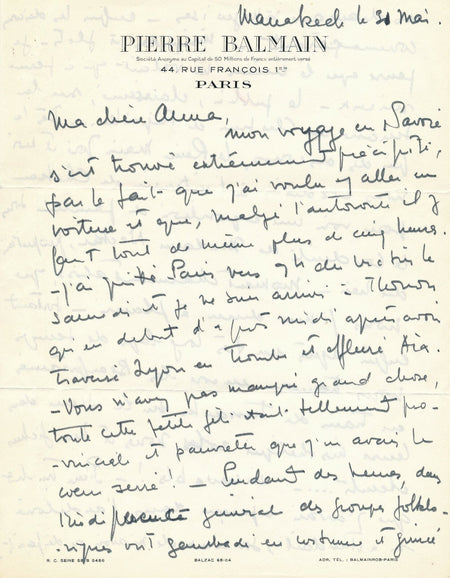 Marrakech le 31 Mai.
PIERRE BALMAIN
Société Anonyme au Capital de 50 Millions de Francs entièrement versé
44, RUE FRANÇOIS 1ER
PARIS
Ma chère Anna,
mon voyage en Savoie
s'est trouvé extrêmement précipité,
par le fait que j'ai voulu y aller en
voiture et que, malgré l'autoroute il y
faut tout de même plus de cinq heures.
- j'ai quitté Paris vers 7h du matin le
samedi et je ne suis arrivé à Thonon
qu'en début d'après midi après avoir
traversé Lyon en trombe et effleuré Aix.
- Vous n'avez pas manqué grand chose,
toute cette petite fête était tellement pro-
vinciale et pauvrette que j'en avais le
coeur serré! - Pendant des heures, dans
général des groupes folklo-
riques ont gambadé en costume et
R. C. SEINE
BALZAC 68-04
ADR. TÉL. : BALMAINROB-PARIS